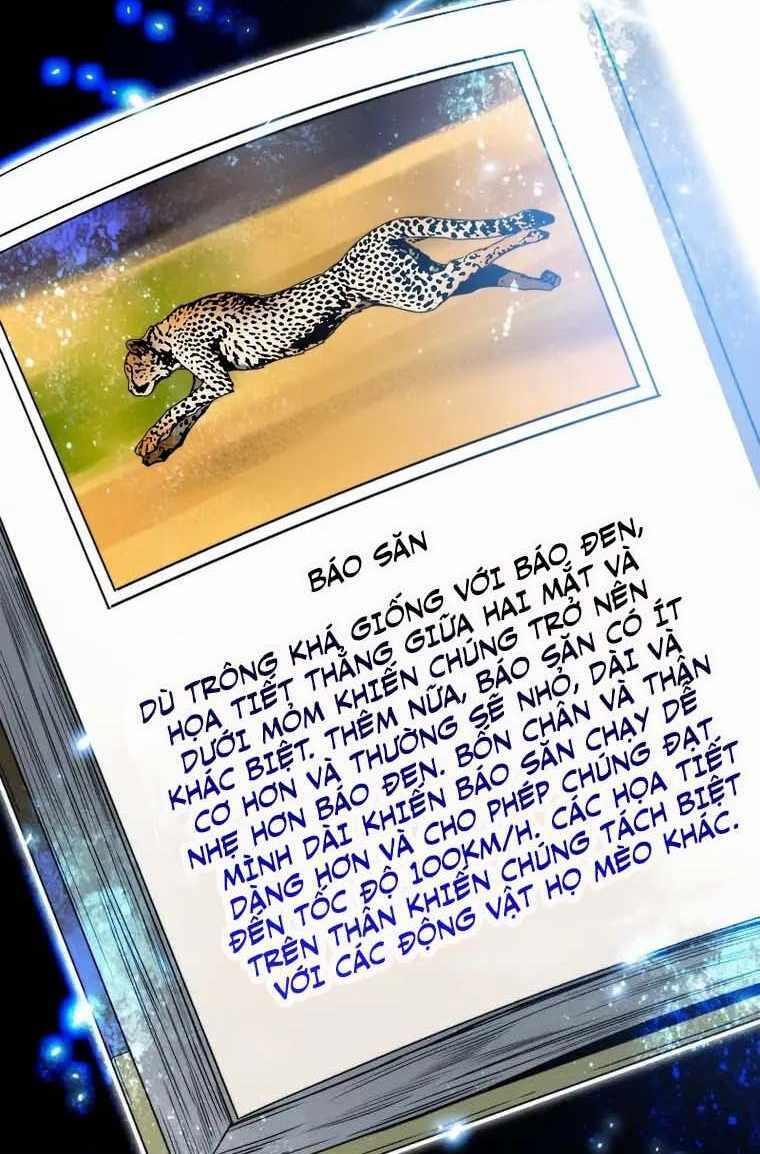 BÁO SĂN
DÙ TRÔNG KHÁ GIỐNG VỚI BÁO ĐEN,
HỌA TIẾT THẲNG GIỮA HAI MẮT VÀ
DƯỚI MỎM KHIẾN CHÚNG TRỞ NÊN
KHÁC BIỆT. THÊM NỮA, BÁO SĂN CÓ ÍT
CƠ HƠN VÀ THƯỜNG SẼ NHỎ, DÀI VÀ
NHẸ HƠN BÁO ĐEN. BỐN CHÂN VÀ THÂN
MÌNH DÀI KHIẾN BÁO SĂN CHẠY DỄ
DÀNG HƠN VÀ CHO PHÉP CHÚNG ĐẠT
ĐẾN TỐC ĐỘ 100KM/H. CÁC HỌA TIẾT
TRÊN THÂN KHIẾN CHÚNG TÁCH BIỆT
VỚI CÁC ĐỘNG VẬT HỌ MÈO KHÁC.